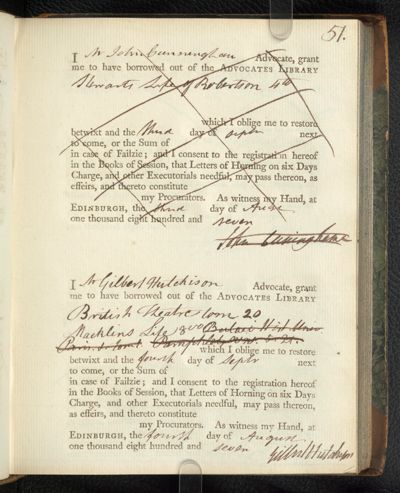 51.
I Mr John Cunningham Advocate, grant
me to have borrowed out of the ADVOCATES LIBRARY
Stewarts Life of Robertson 4to
which I oblige me to restore
betwixt and the third day of Septr next
to come, or the Sum of
in case of Failzie; and I consent to the registration hereof
in the Books of Session, that Letters of Horning on six Days
Charge, and other Executorials needful, may pass thereon, as
effeirs, and thereto constitute
my Procurators. As witness my Hand, at
EDINBURGH, the third day of
one thousand eight hundred and seven
John Cuninghame
I Mr Gilbert Hutchison Advocate, grant
me to have borrowed out of the ADVOCATES LIBRARY
British Theatre tom 20
Macklins Life 8vo
which I oblige me to restore
betwixt and the fourth day of Septr next
to come, or the Sum of
in case of Failzie; and I consent to the registration hereof
in the Books of Session, that Letters of Horning on six Days
Charge, and other Executorials needful, may pass thereon,
as effeirs, and thereto constitute
my Procurators. As witness my Hand, at
EDINBURGH, the fourth day of August
one thousand eight hundred and seven
Gilbert Hutchison